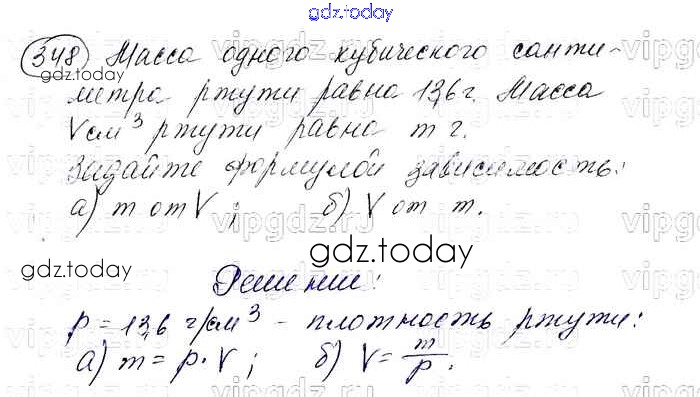 gdz.today
348) Масса одного кубического санти-
gdz.today
метра ртути равна 13,6 г. Масса
V см³ ртути равна m г.
Задайте формулой зависимость:
а) m от V; б) V от m.
gdz.today
gdz.today
Решение:
p = 13,6 г/см³ - плотность ртути:
а) m = p · V; б) V = m/p.